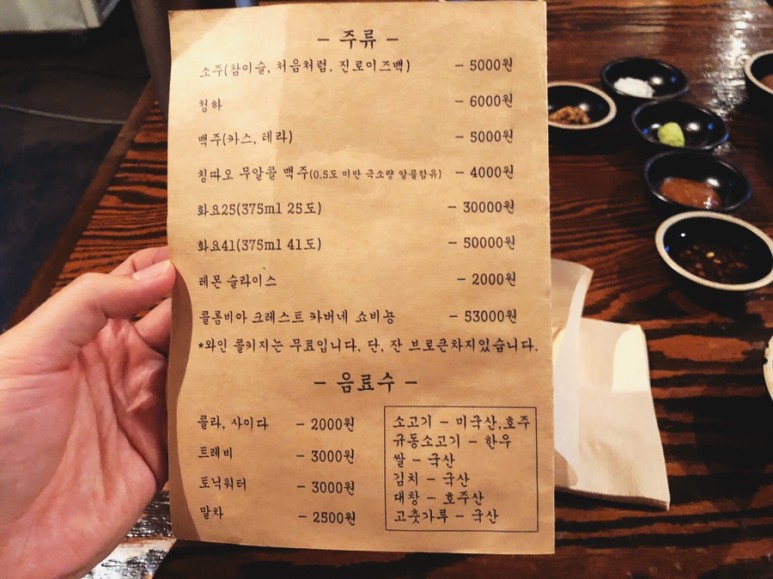 - 주류 -
소주(참이슬, 처음처럼, 진로이즈백) - 5000원
청하 - 6000원
맥주(카스, 테라) - 5000원
칭따오 무알콜 맥주(0.5도 미만 극소량 알콜함유) - 4000원
화요25(375ml 25도) - 30000원
화요41(375ml 41도) - 50000원
레몬 슬라이스 - 2000원
콜롬비아 크레스트 카버네 쇼비뇽 - 53000원
*와인 콜키지는 무료입니다. 단, 잔 브로큰차지있습니다.
- 음료수 -
콜라, 사이다 - 2000원
트레비 - 3000원
토닉워터 - 3000원
말차 - 2500원
소고기 - 미국산,호주
규동소고기 - 한우
쌀 - 국산
김치 - 국산
대창 - 호주산
고춧가루 - 국산